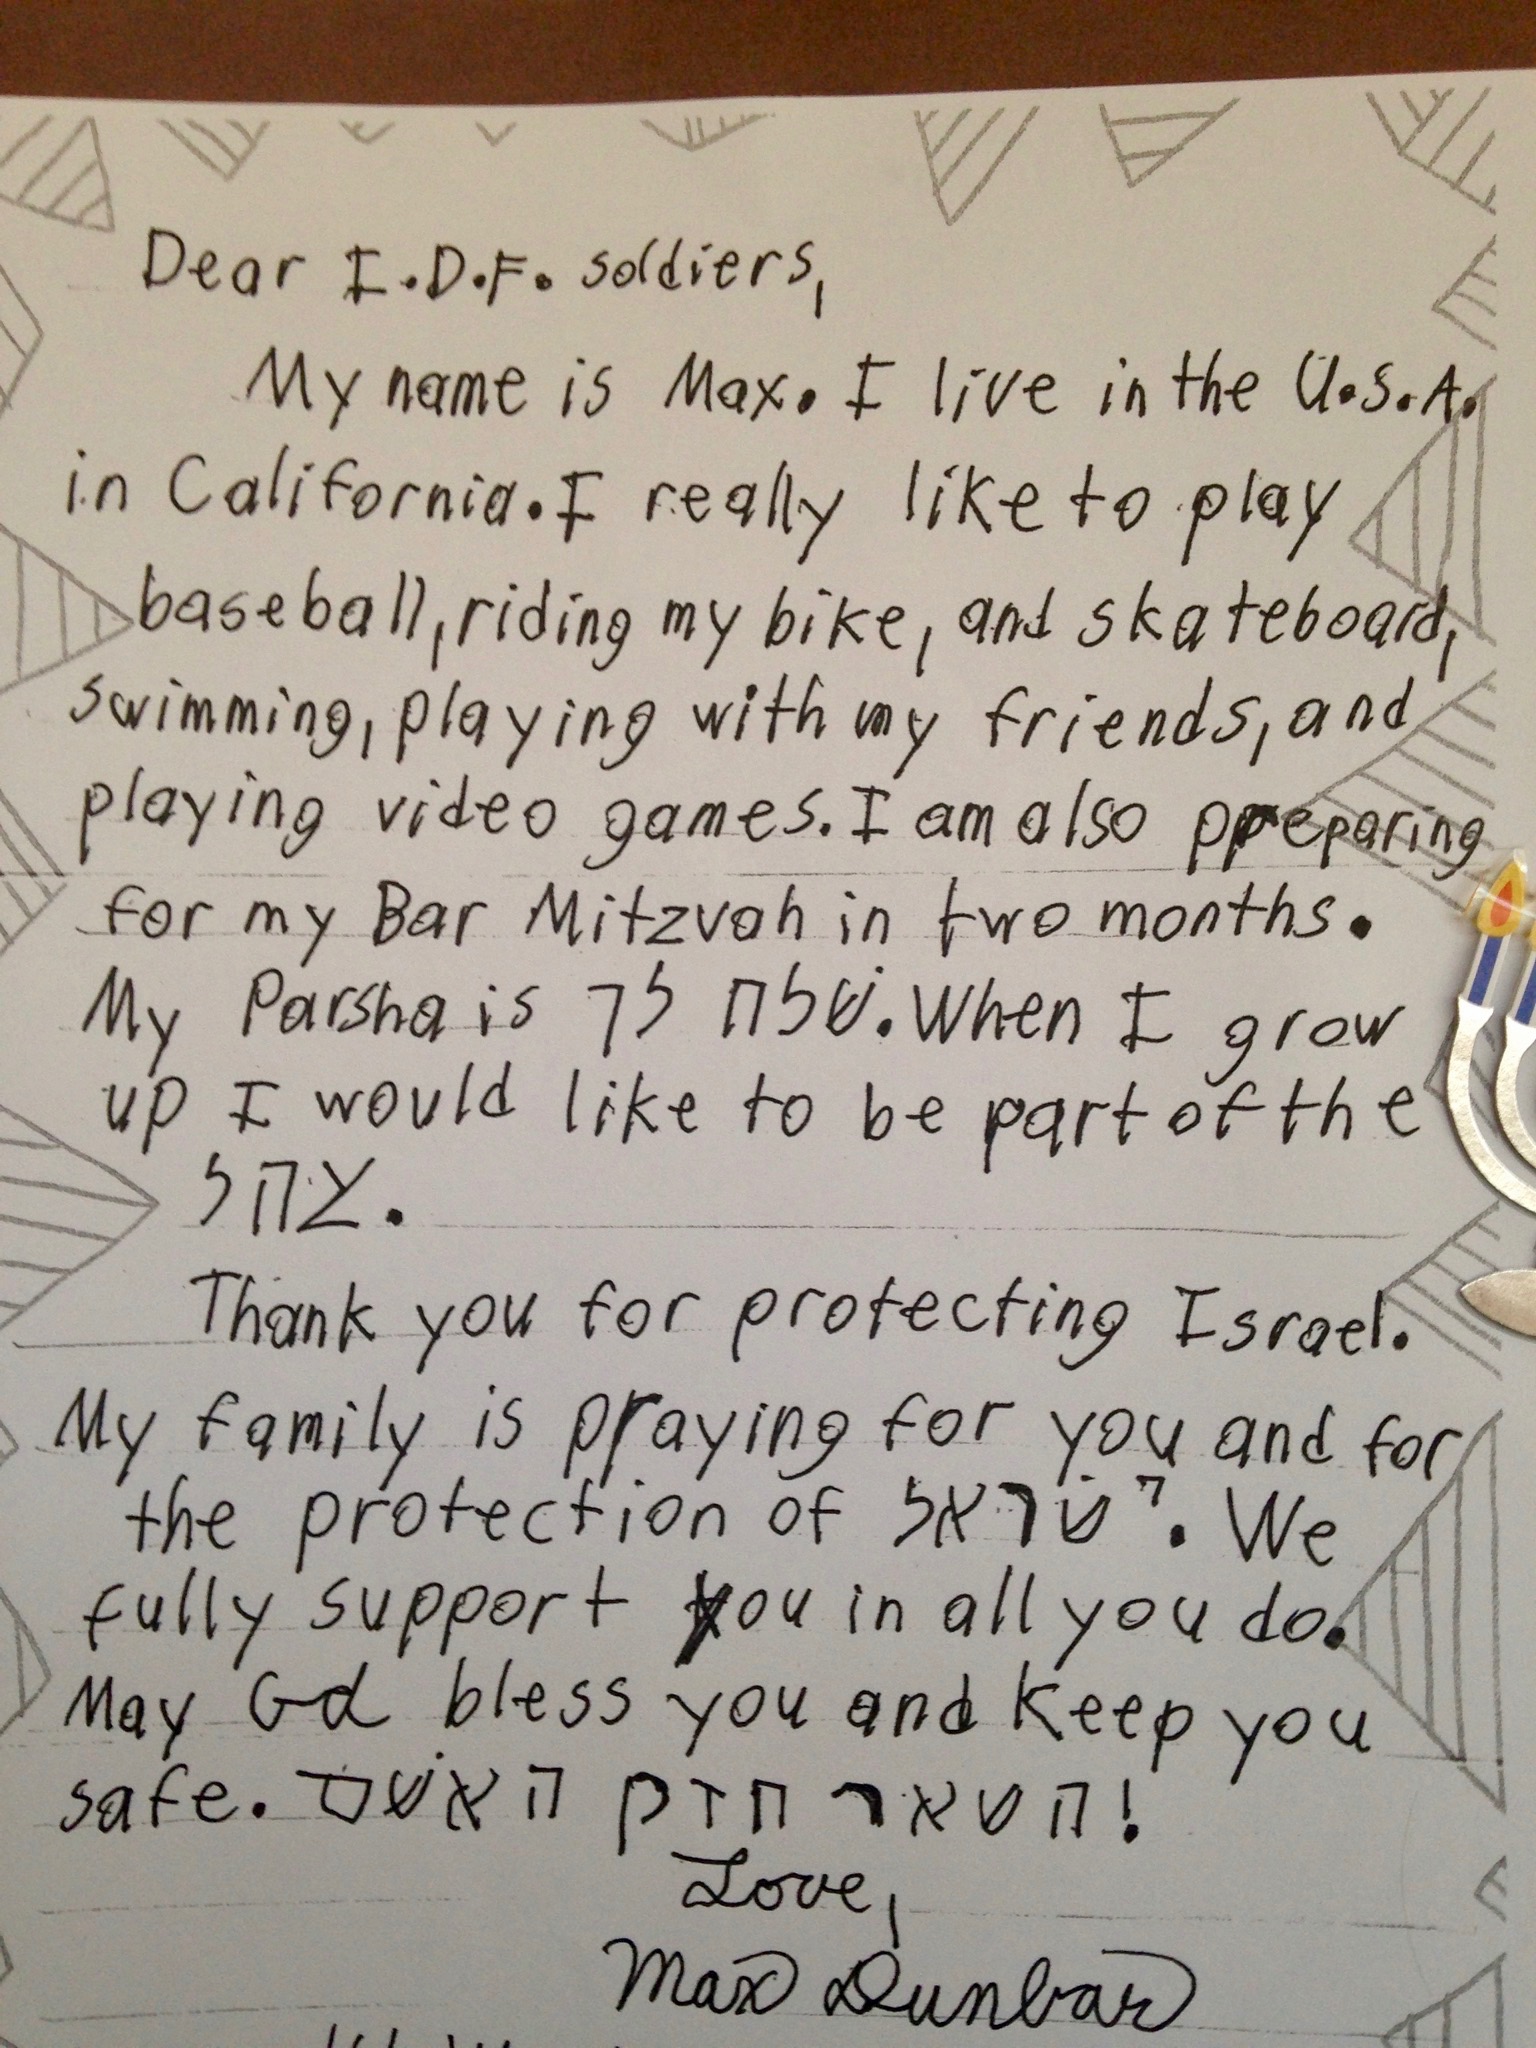 Dear I.D.F. soldiers,
My name is Max. I live in the U.S.A.
in California. I really like to play
baseball, riding my bike, and skateboard,
swimming, playing with my friends, and
playing video games. I am also ppreparing
for my Bar Mitzvah in two months.
My Parsha is שׁלח לך. When I grow
up I would like to be part of the
צהל.
Thank you for protecting Israel.
My family is praying for you and for
the protection of ישׂראל. We
fully support you in all you do.
May Gd bless you and keep you
safe. השאר חזק האשׁם!
Love,
Max Dunbar